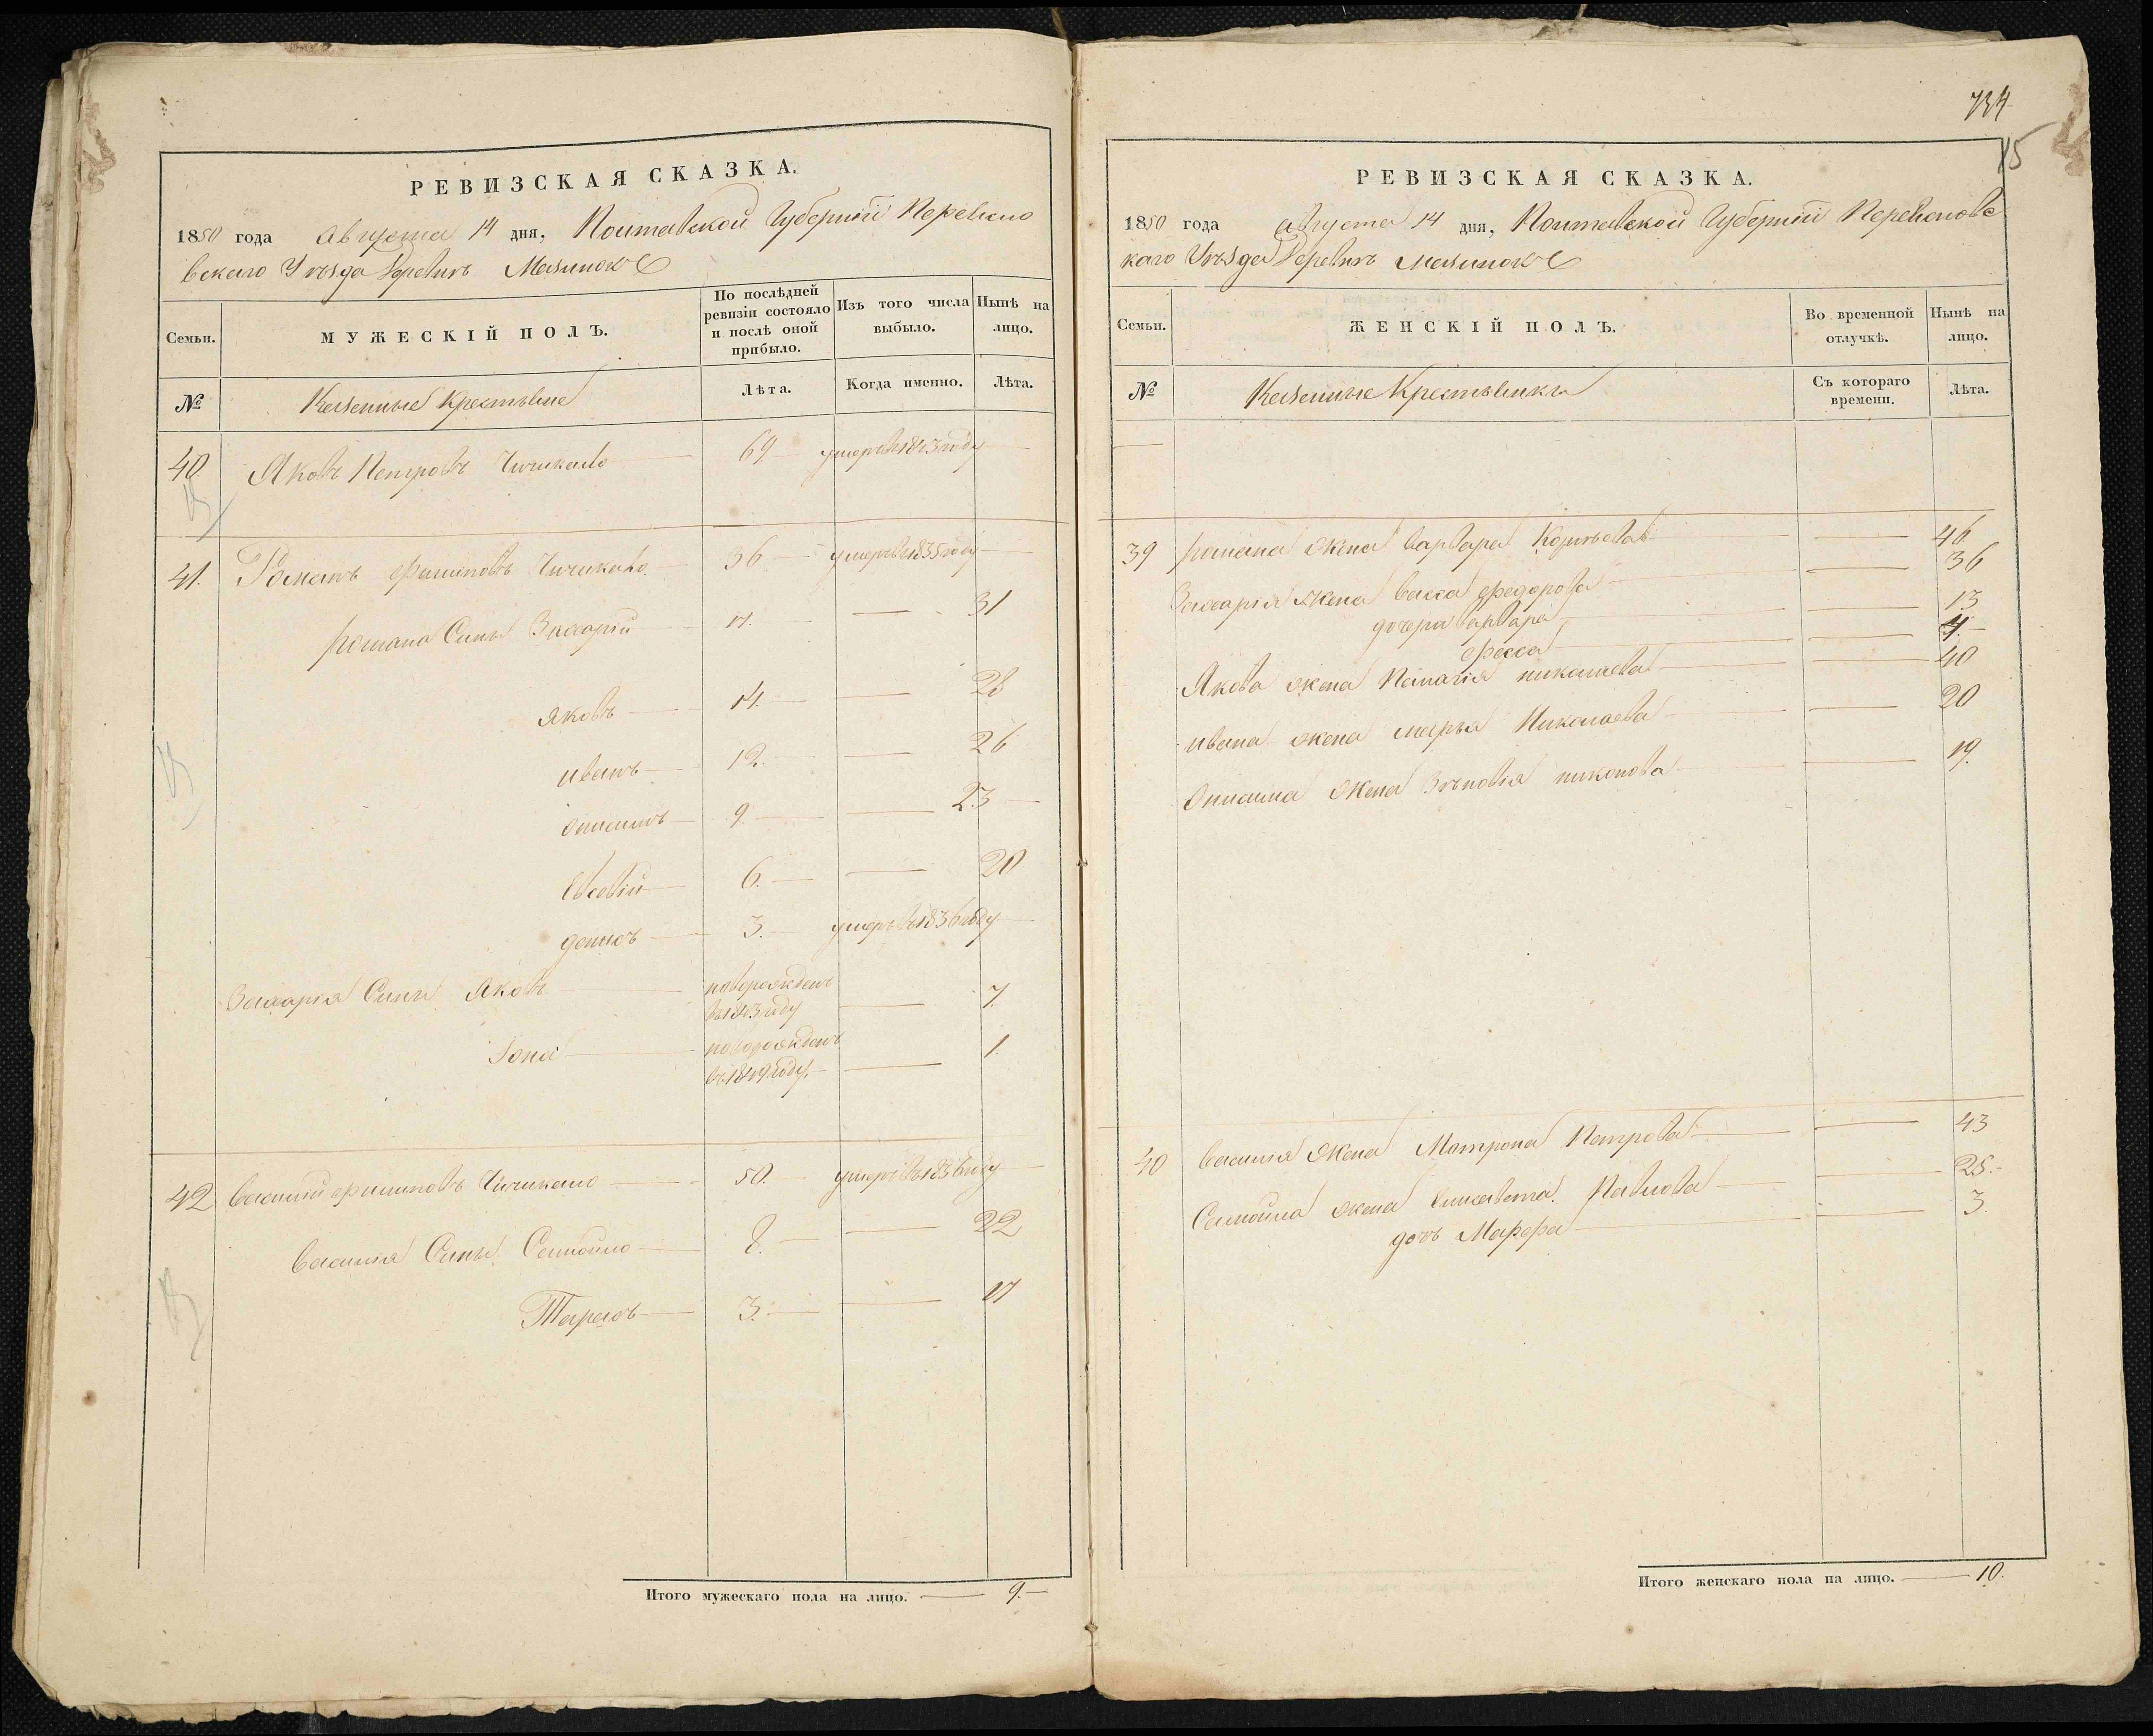 РЕВИЗСКАЯ СКАЗКА.
1850 года августа 14 дня, Полтавской Губерніи Кереколо
вскаго Уѣзда Деревнѣ
Семьи.
МУЖЕСКІЙ ПОЛЪ.
По послѣдней ревизіи состояло и послѣ оной прибыло.
Изъ того числа выбыло.
Нынѣ на лицо.
№
Казенные Крестьяне
Лѣта.
Когда именно.
Лѣта.
40 Яковъ Петровъ 69. умеръ въ 1843 году
41. Романъ Филиповъ 36 умеръ въ 1835 году
Романа Сыны Захарій 17. 31
Яковъ 14. 28
Иванъ 12. 26
Онисимъ 9. 23
Евсевій 6. 20
Денисъ 3. умеръ въ 1836 году
Захарія Сыны Яковъ новорожденъ въ 1843 году 7.
Іона новорожденъ въ 1849 году 1.
42 Василій Филиповъ 50. умеръ въ 1836 году
Василія Сыны Самойло 8. 22
Тарасъ 3. 17
Итого мужескаго пола на лицо. 9.
734
15
РЕВИЗСКАЯ СКАЗКА.
1850 года августа 14 дня, Полтавской Губерніи
каго Уѣзда Деревнѣ
Семьи.
ЖЕНСКІЙ ПОЛЪ.
Во временной отлучкѣ.
Нынѣ на лицо.
№
Казенные Крестьянки
Съ котораго времени.
Лѣта.
39 Романа жена Варвара 46.
Захарія жена Васса Федорова 36
дочери Варвара 13
4.
Якова жена Палагія 40
Ивана жена Марья Николаева 20
Онисима жена Зѣновія никонова 19.
40 Василія жена Матрона Петрова 43
Самойла жена Елисавета Павлова 25.
дочь Марфа 3.
Итого женскаго пола на лицо. 10.